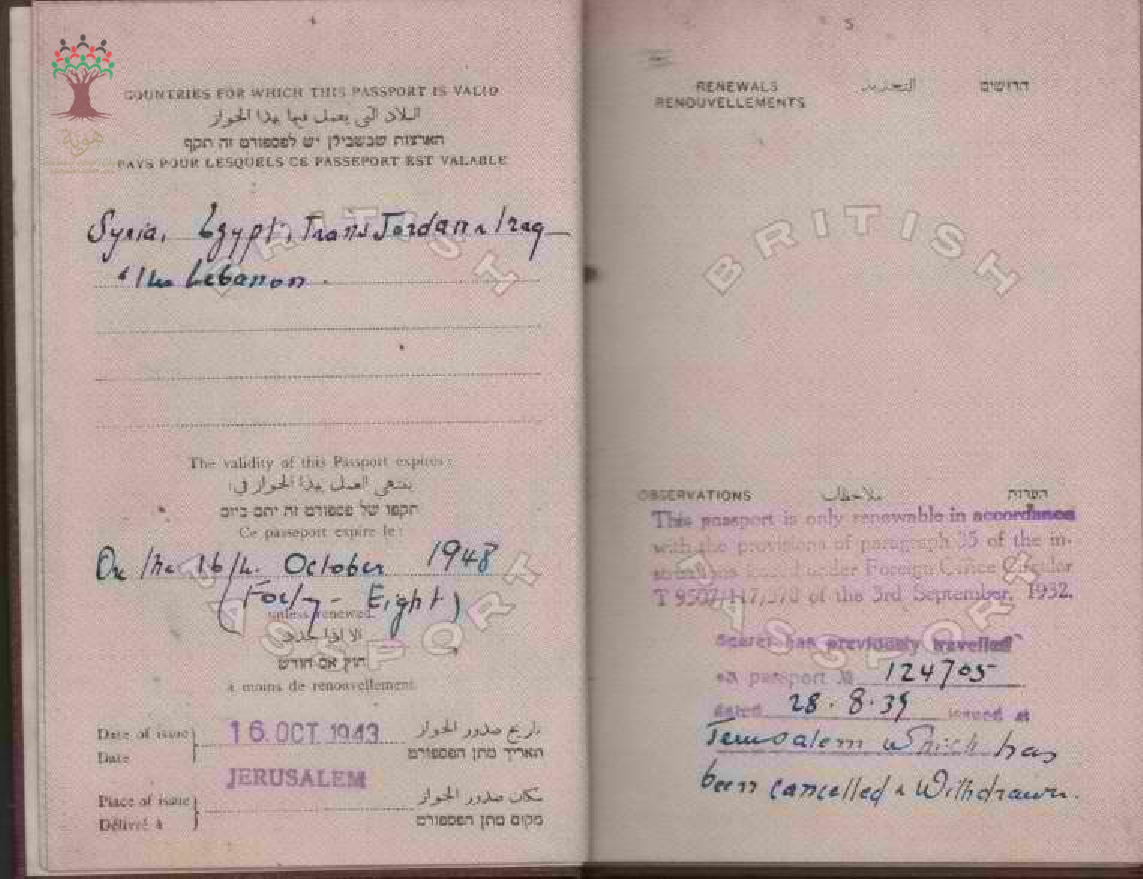 4
COUNTRIES FOR WHICH THIS PASSPORT IS VALID
البلاد التي يعمل فيها بهذا الجواز
הארצות שבשבילן יש לפספורט זה תקף
PAYS POUR LESQUELS CE PASSEPORT EST VALABLE
هوية
Syria, Egypt, TransJordan & Iraq
& the Lebanon.
BRITISH
The validity of this Passport expires:
ينتهي العمل بهذا الجواز في:
תקפו של פספורט זה יתם ביום
Ce passeport expire le:
On the 16th. October 1948
(Forty-Eight)
unless renewed.
الا اذا جدد
חוץ אם חודש
à moins de renouvellement
PASSPORT
Date of issue
تاريخ صدور الجواز
16. OCT 1943
Date
תאריך מתן הפספורט
JERUSALEM
Place of issue
مكان صدور الجواز
Délivré à
מקום מתן הפספורט
5
RENEWALS
التجديد
חדושים
RENOUVELLEMENTS
BRITISH
OBSERVATIONS
ملاحظات
הערות
This passport is only renewable in accordance
with the provisions of paragraph 35 of the in-
structions issued under Foreign Office Circular
T 9507/ of the 3rd September, 1932.
PASSPORT
Bearer has previously travelled
on passport № 124705
dated 28.8.39 issued at
Jerusalem which has
been cancelled & withdrawn.